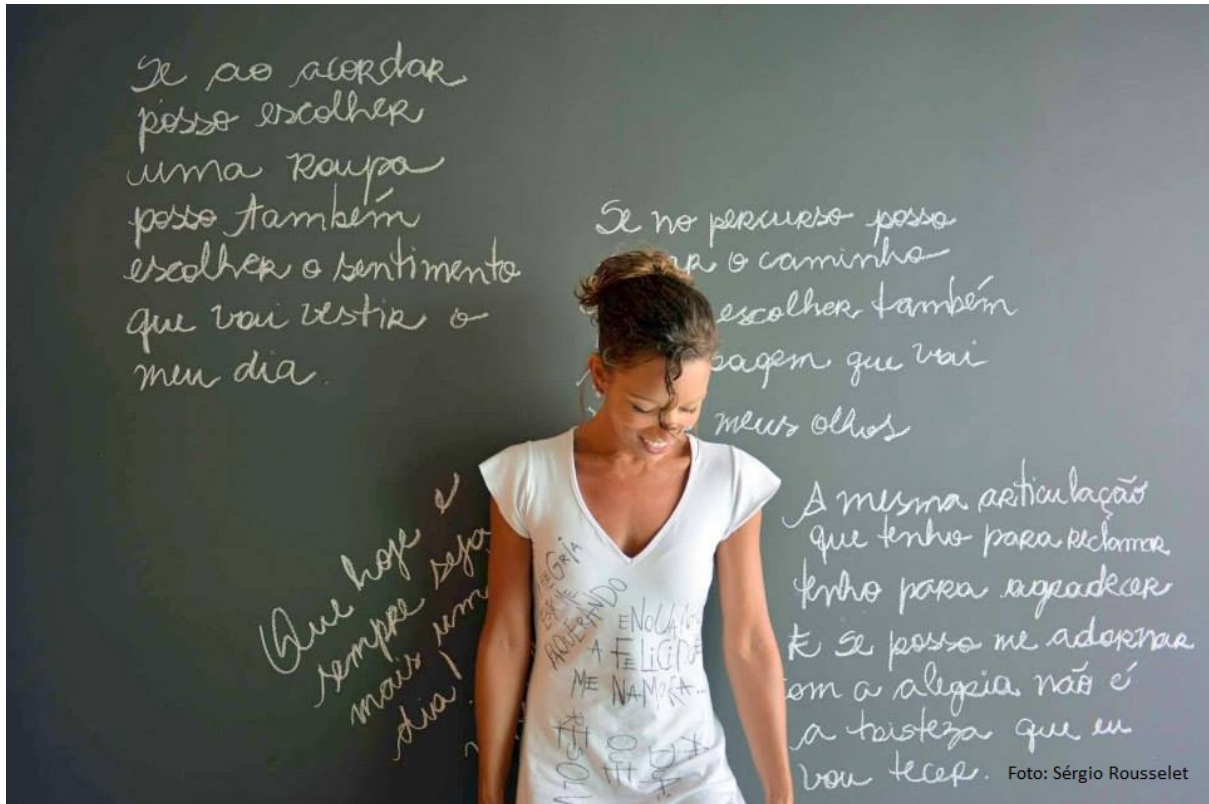 Se ao acordar
posso escolher
uma roupa
posso também
escolher o sentimento
que vai vestir o
meu dia.
Se no percurso posso
o caminho
escolher também
que vai
meus olhos
Que hoje e
sempre seja
mais um
dia!
A mesma articulação
que tenho para reclamar
tenho para agradecer
E se posso me adornar
com a alegria não é
a tristeza que eu
vou tecer.
A
ME NAMORA...
Foto: Sérgio Rousselet